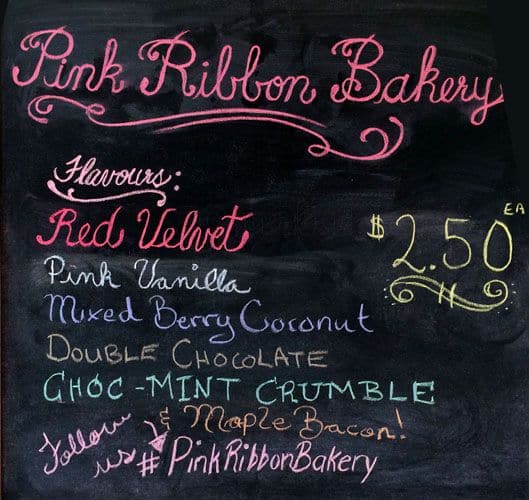 Pink Ribbon Bakery
Flavours:
Red Velvet
$2.50 EA
Pink Vanilla
Mixed Berry Coconut
DOUBLE CHOCOLATE
CHOC-MINT CRUMBLE
& Maple Bacon!
Follow us
#PinkRibbonBakery